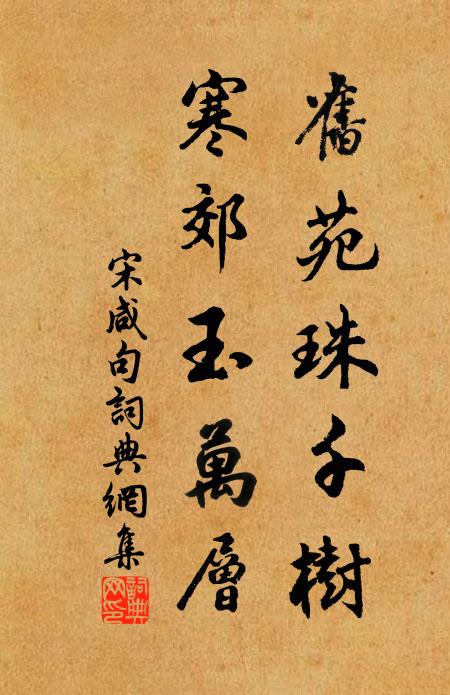 舊苑珠千樹
寒郊玉萬層
宋咸句詞典網集
詞典网印